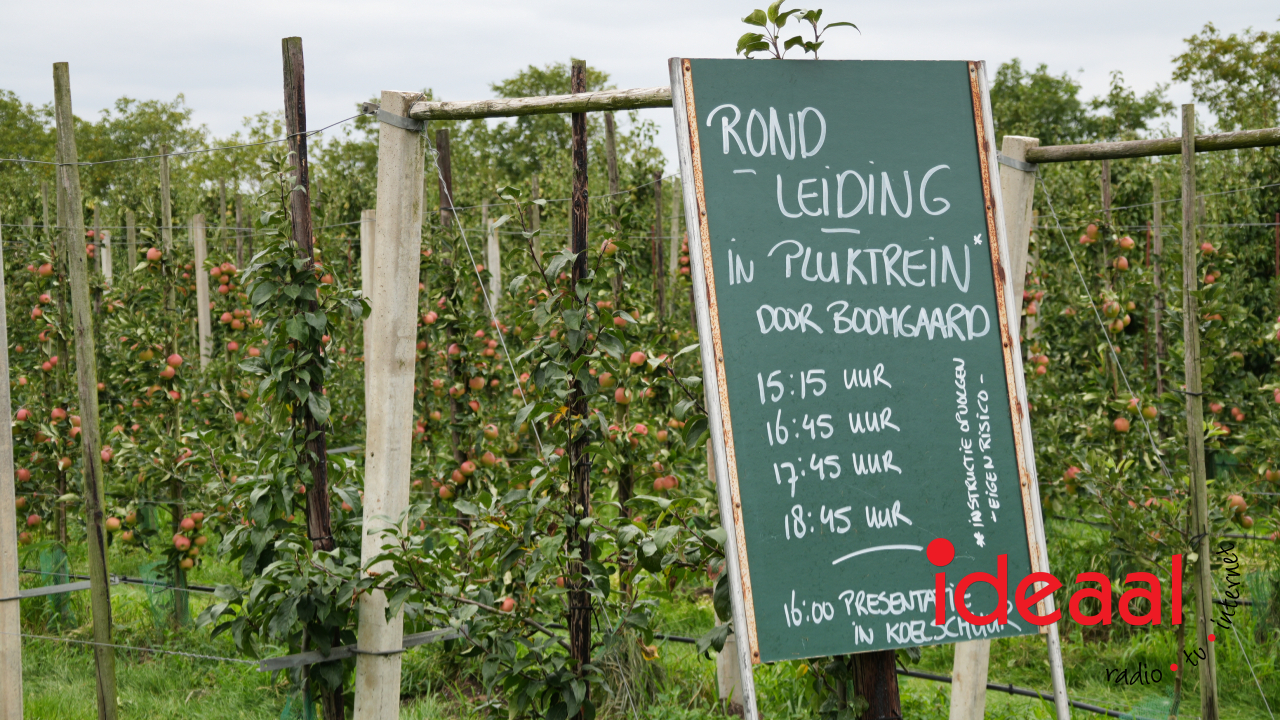 ROND
LEIDING
in PLUKTREIN*
DOOR BOOMGAARD
15:15 UUR
16:45 UUR
17:45 UUR
18:45 UUR
* INSTRUCTIE OPVOLGEN
- EIGEN RISICO -
16:00 PRESENTATIE
IN KOELSCHUUR
ideaal.
radio.tv internet